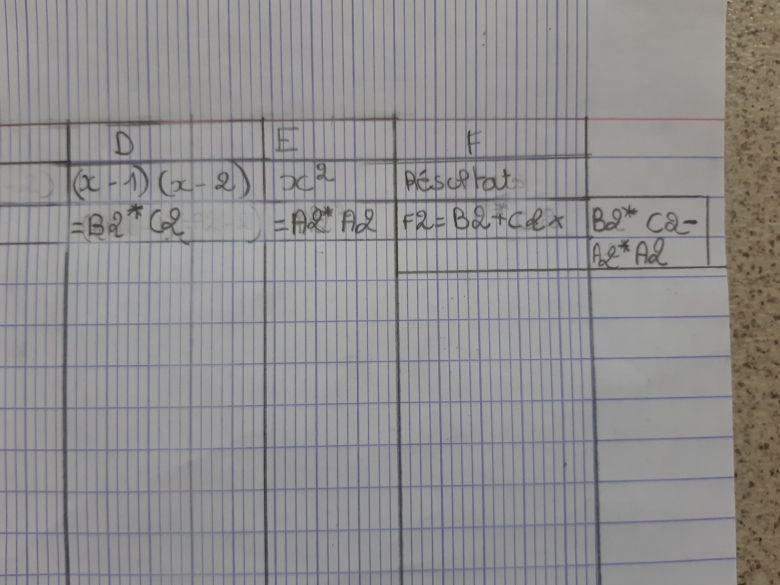 D E F
(x-1)(x-2) x² Résultat
=B2*C2 =A2*A2 F2=B2+C2x B2*C2-
A2*A2